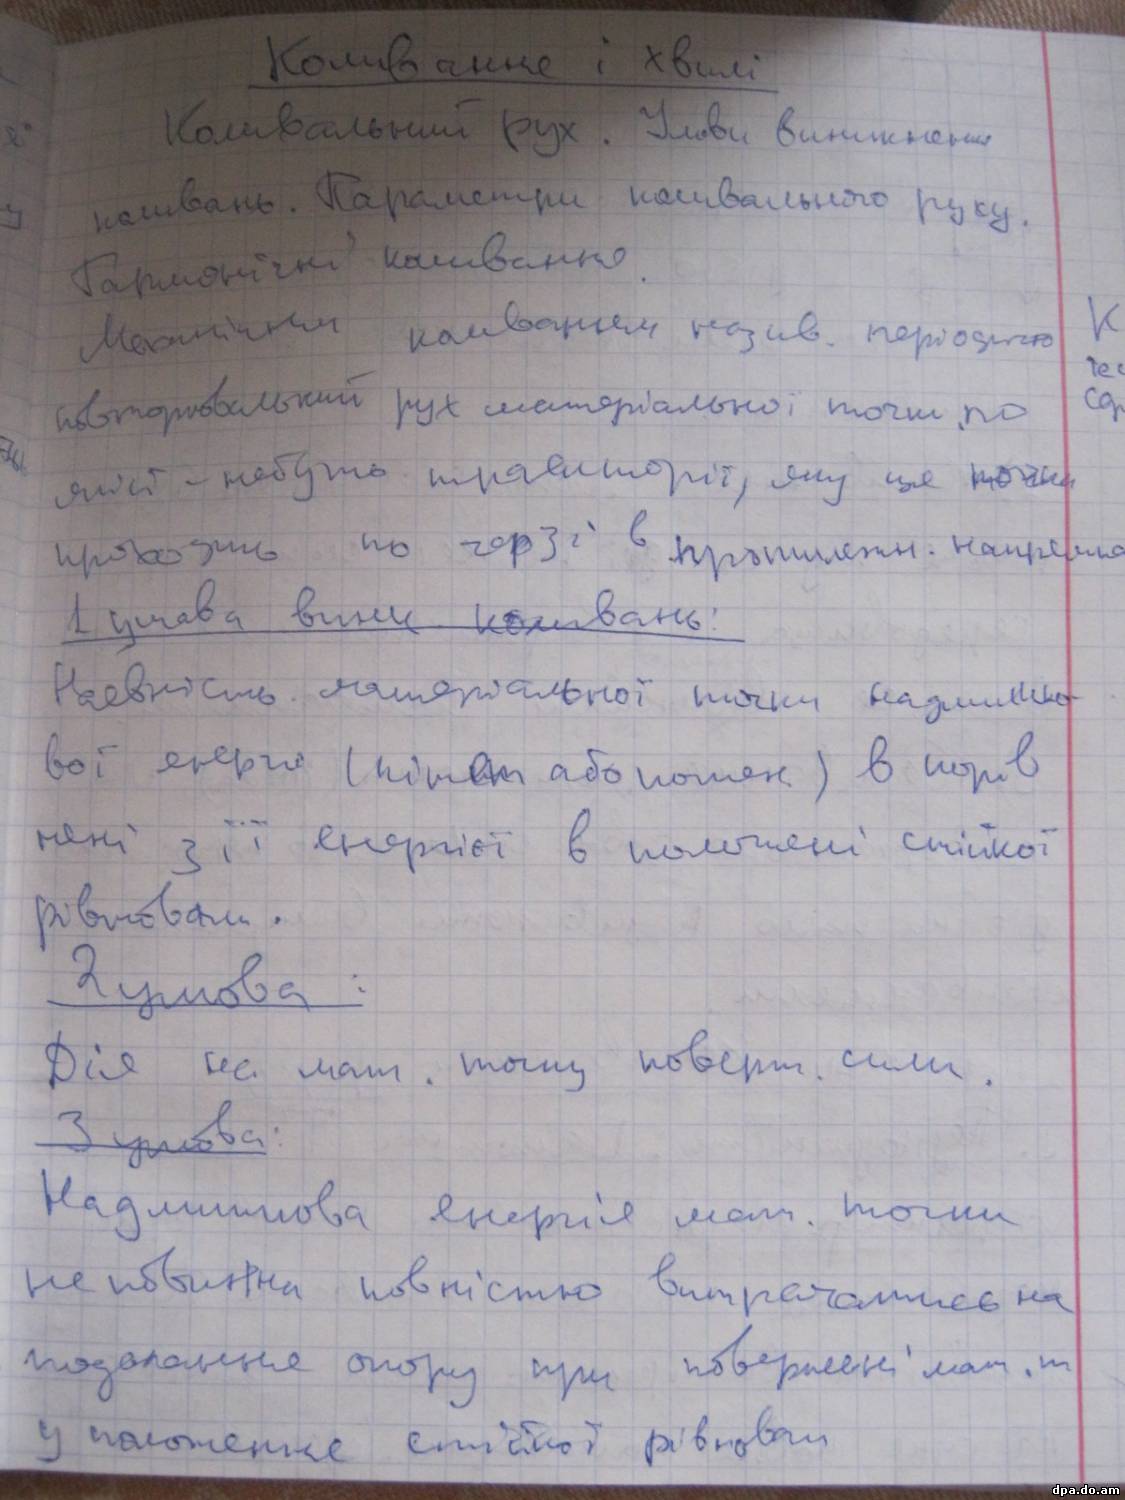 Коливання і хвилі
Коливальний рух. Умови виникнення
коливань. Параметри коливального руху.
Гармонічні коливання.
Механічним коливанням назив. періодично
повторювальний рух матеріальної точки по
якісї-небудь траекторії, яку ця точка
проходить по черзі в протилежн. напрямка
1 умова виник коливань:
Наевність матеріальної точки надлишко
вої енергії (кінет або потен) в порів
нені з її енергієї в положені стійкої
рівноваги.
2 умова:
Дія на мат. точку поверт. сили.
3 умова:
Надлишкова енергія мат. точки
не повинна повністю витрачатись на
подолання опору при повернені мат. т
у положення стійкої рівноваги
dpa.do.am